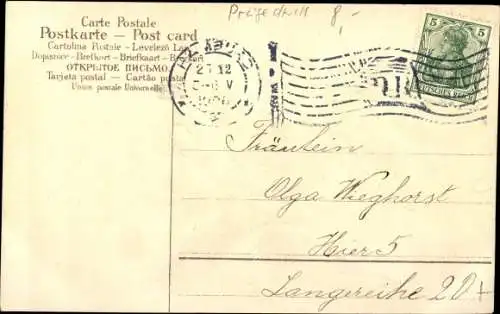 Prägedruck 8,-
Carte Postale
Postkarte — Post card
Cartolina Postale - Levelező Lap
Dopisnice - Brefkort - Briefkaart -
ОТКРЫТОЕ ПИСЬМО
Tarjeta postal - Cartão postal
Union postale Universelle
5 5
DEUTSCHES REICH
12
V
Fräulein
Olga Wieghorst
Hier 5
Langereihe 20